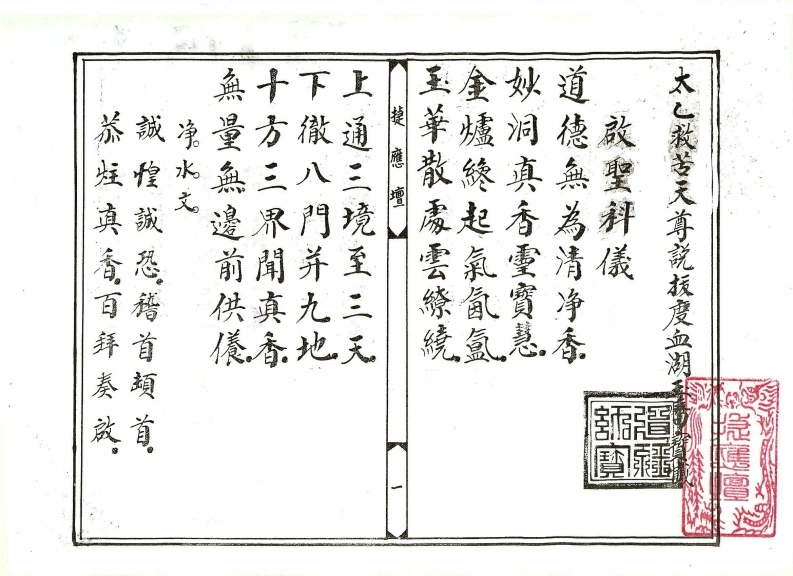 太乙救苦天尊説拔度血湖寶懺
啟聖科儀
道德無為清净香
妙洞真香靈寶慧
金爐終起氣氤氳
玉華散處雲繚繞
捷應壇
一
上通三境至三天
下徹八門并九地
十方三界聞真香
無量無邊前供儀
净水文
誠惶誠恐稽首頓首
恭炷真香百拜奏啟
道經師寶
捷應壇